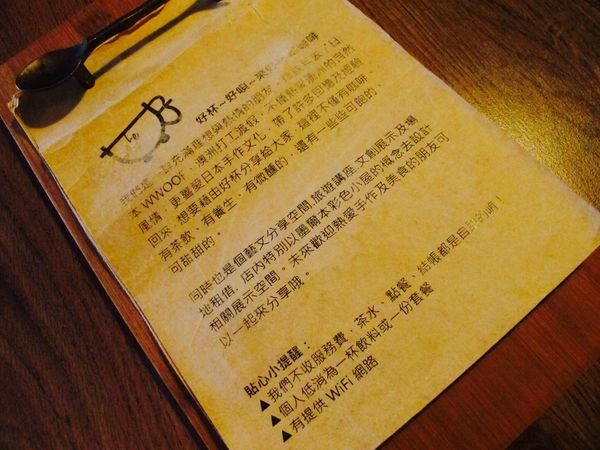 好杯~好啊~來
我們是一群充滿理想與熱情的朋友
本WWOOF、澳洲打工渡假,不僅熱愛澳洲的自然
風情,更喜愛日本手作文化,帶了許多回憶及經驗
回來,想要藉由好杯分享給大家,這裡不僅有咖啡,
有茶飲,有養生,有微醺的,還有一些些可飽的,
可甜甜的。
同時也是個藝文分享空間,旅遊講座,文創展示及場
地租借,店內特別以墨爾本彩色小屋的概念去設計
相關展示空間。未來歡迎熱愛手作及美食的朋友可
以一起來分享哦。
貼心小提醒:
▲我們不收服務費,茶水,點餐,結帳都是自助的唷!
▲個人低消為一杯飲料或一份套餐
▲有提供 WiFi 網路